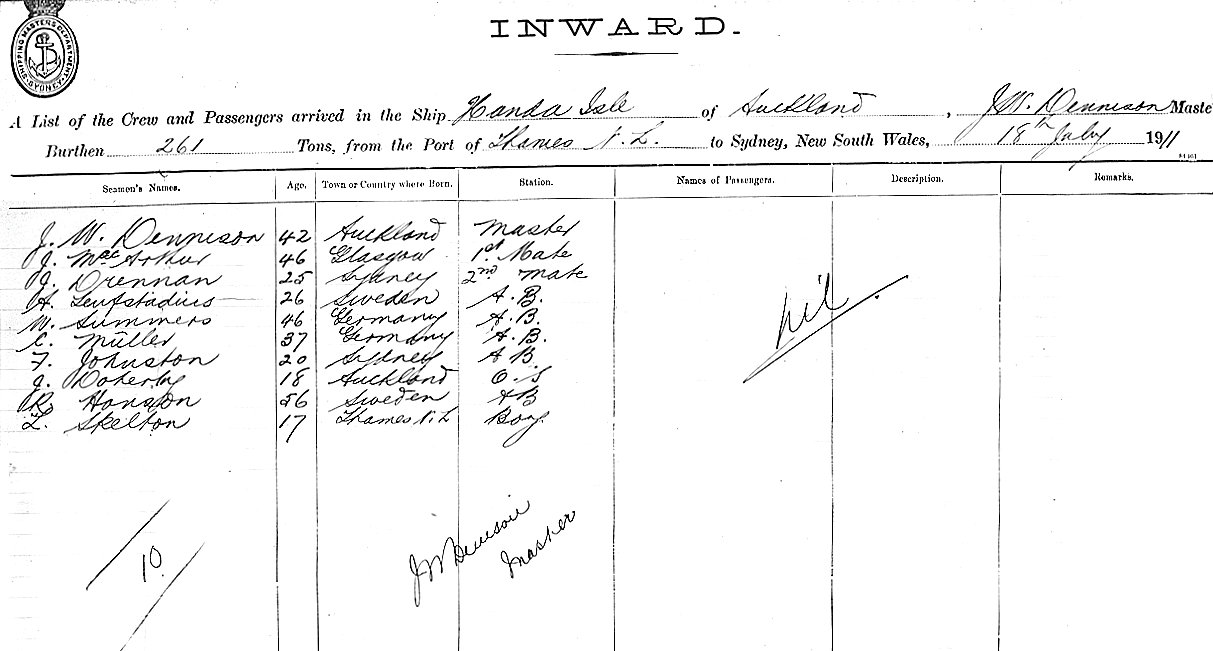 SHIPPING MASTERS DEPARTMENT SYDNEY
INWARD.
A List of the Crew and Passengers arrived in the Ship Handa Isle of Auckland, J W. Dennison Maste
Burthen 261 Tons, from the Port of Thames N.Z. to Sydney, New South Wales, 18th July 1911
Seamen's Names. Age. Town or Country where Born. Station. Names of Passengers. Description. Remarks.
J. W. Dennison 42 Auckland Master
J. McArthur 46 Glasgow 1st Mate
J. Drennan 25 Sydney 2nd Mate
H. Leufstadius 26 Sweden A.B.
W. Summers 46 Germany A.B.
C. Müller 37 Germany A.B.
F. Johnston 20 Sydney A B.
J. Doherty 18 Auckland O.S
R. Hanson 56 Sweden AB
L. Skelton 17 Thames N.Z Boy.
nil
10
J W Dennison
Master